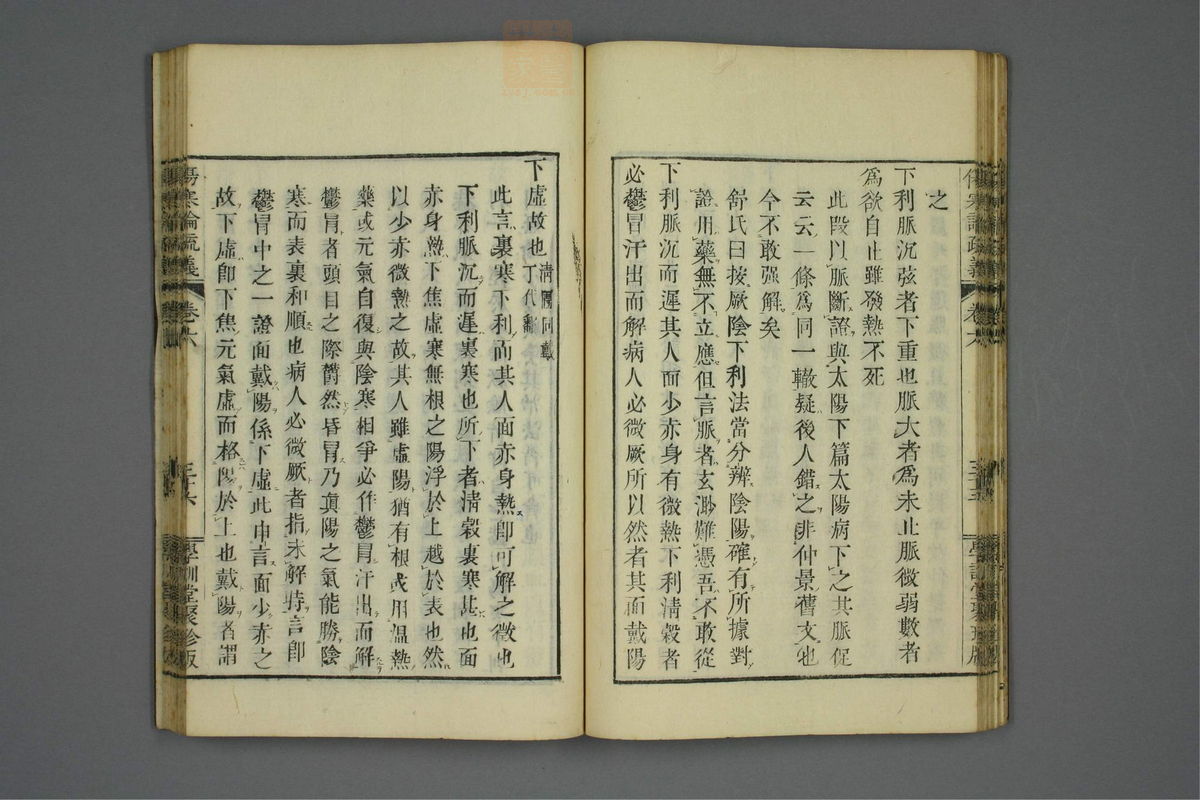 之
下利脈沉弦者下重也脈大者為未止脈微弱數者
為欲自止雖發熱不死
此段以脈斷證與太陽下篇太陽病下之其脈促
云云一條為同一轍疑後人錯之非仲景舊文也
今不敢强解矣
舒氏曰按厥陰下利法當分辨陰陽確有所據對
證用藥無不立應但言脈者玄渺難憑吾不敢從
下利脈沉而遲其人面少赤身有微熱下利淸穀者
必鬱冒汗出而解病人必微厥所以然者其面戴陽
傷寒論疏義 卷六 學訓堂聚珍版
下虛故也
此言裏寒下利而其人面赤身熱卽可解之徵也
下利脈沉而遲裏寒也所下者淸穀裏寒甚也面
赤身熱下焦虛寒無根之陽浮於上越於表也然
以少赤微熱之故其人雖虛陽猶有根或用溫熱
藥或元氣自復與陰寒相爭必作鬱冒汗出而解
鬱冒者頭目之際欝然昏冒乃眞陽之氣能勝陰
寒而表裏和順也病人必微厥者指未解時言卽
鬱冒中之一證面戴陽係下虛此申言面少赤之
故下虛卽下焦元氣虛而格陽於上也戴陽者謂
傷寒論疏義 卷六 三十六 學訓堂聚珍版